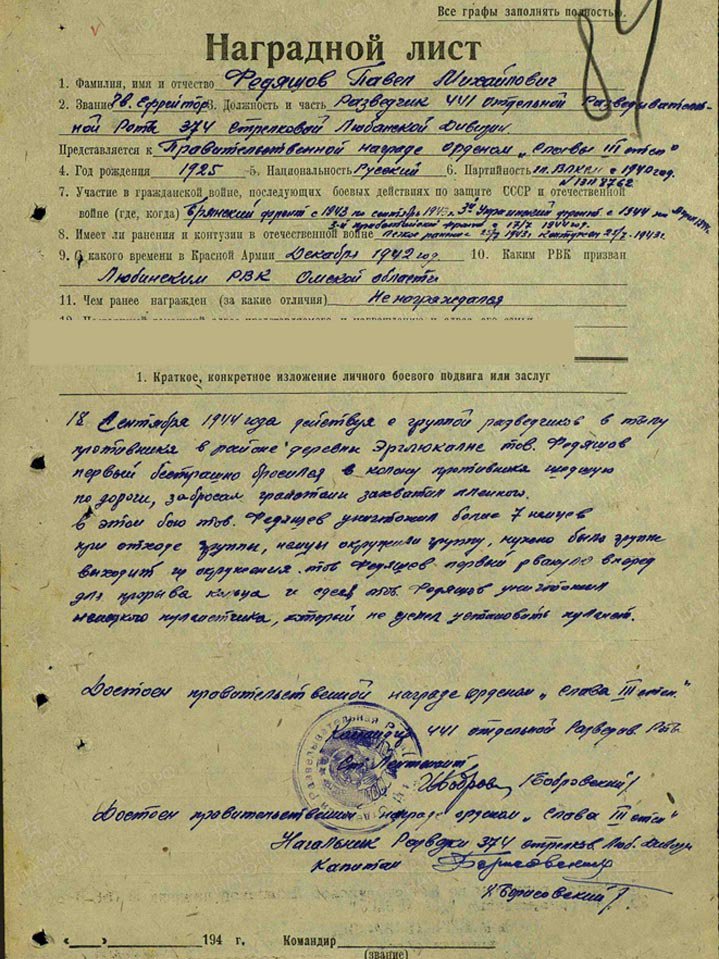 Все графы заполнять полностью.
84
Наградной лист
1. Фамилия, имя и отчество Федящов Павел Михайлович
2. Звание Гв. Ефрейтор 3. Должность и часть Разведчик 441 отдельной Разведыватель-
ной Роты 374 стрелковой Любанской Дивизии.
Представляется к Правительственной награде орденом „Славы III степ"
4. Год рождения 1925 5. Национальность Русский 6. Партийность чл. ВЛКСМ с 1940 год.
7. Участие в гражданской войне, последующих боевых действиях по защите СССР и отечественной
войне (где, когда) Брянский фронт с 1943 по сентябрь 1943 г. 3й Украинский фронт с 1944 по
3-й прибалтийский фронт с 1944 год.
8. Имеет ли ранения и контузии в отечественной войне легкое ранение 1943г. Контузия 1943г.
9. С какого времени в Красной Армии Декабря 1942 год 10. Каким РВК призван
Любинским РВК Омской области
11. Чем ранее награжден (за какие отличия) Не награждался
1. Краткое, конкретное изложение личного боевого подвига или заслуг
18 Сентября 1944 года действуя с группой разведчиков в тылу
противника в районе деревни Эрглюкалне тов. Федящов
первый бесстрашно бросился в колону противника шедшую
по дороги, забросал гранатами захватил пленного.
В этом бою тов. Федящев уничтожил более 7 немцев
при отходе группы, немцы окружили группу, нужно было группе
выходить из окружения. тов Федящев первый рванул вперед
для прорыва кольца и здесь тов. Федящов уничтожил
немецкого пулеметчика, который не успел установить пулемет.
Достоен правительственной награде орденом „Слава III степ."
Командир 441 отдельной Разведов. Роты
Ст. Лейтенант
/Бобровский/
Достоен правительственной награде орденом „Слава III степ"
Начальник Разведки 374 стрелков Люб. Дивизии
Капитан
/Борисовский/
« » 194 г. Командир
(звание)